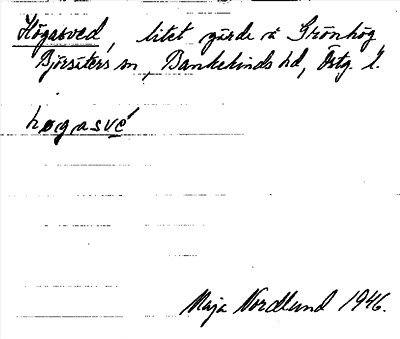 Högasved, litet gärde å Grönhög
Björsäters sn, Bankekinds hd, Östg. l.
høgasvé
Maja Nordlund 1946.